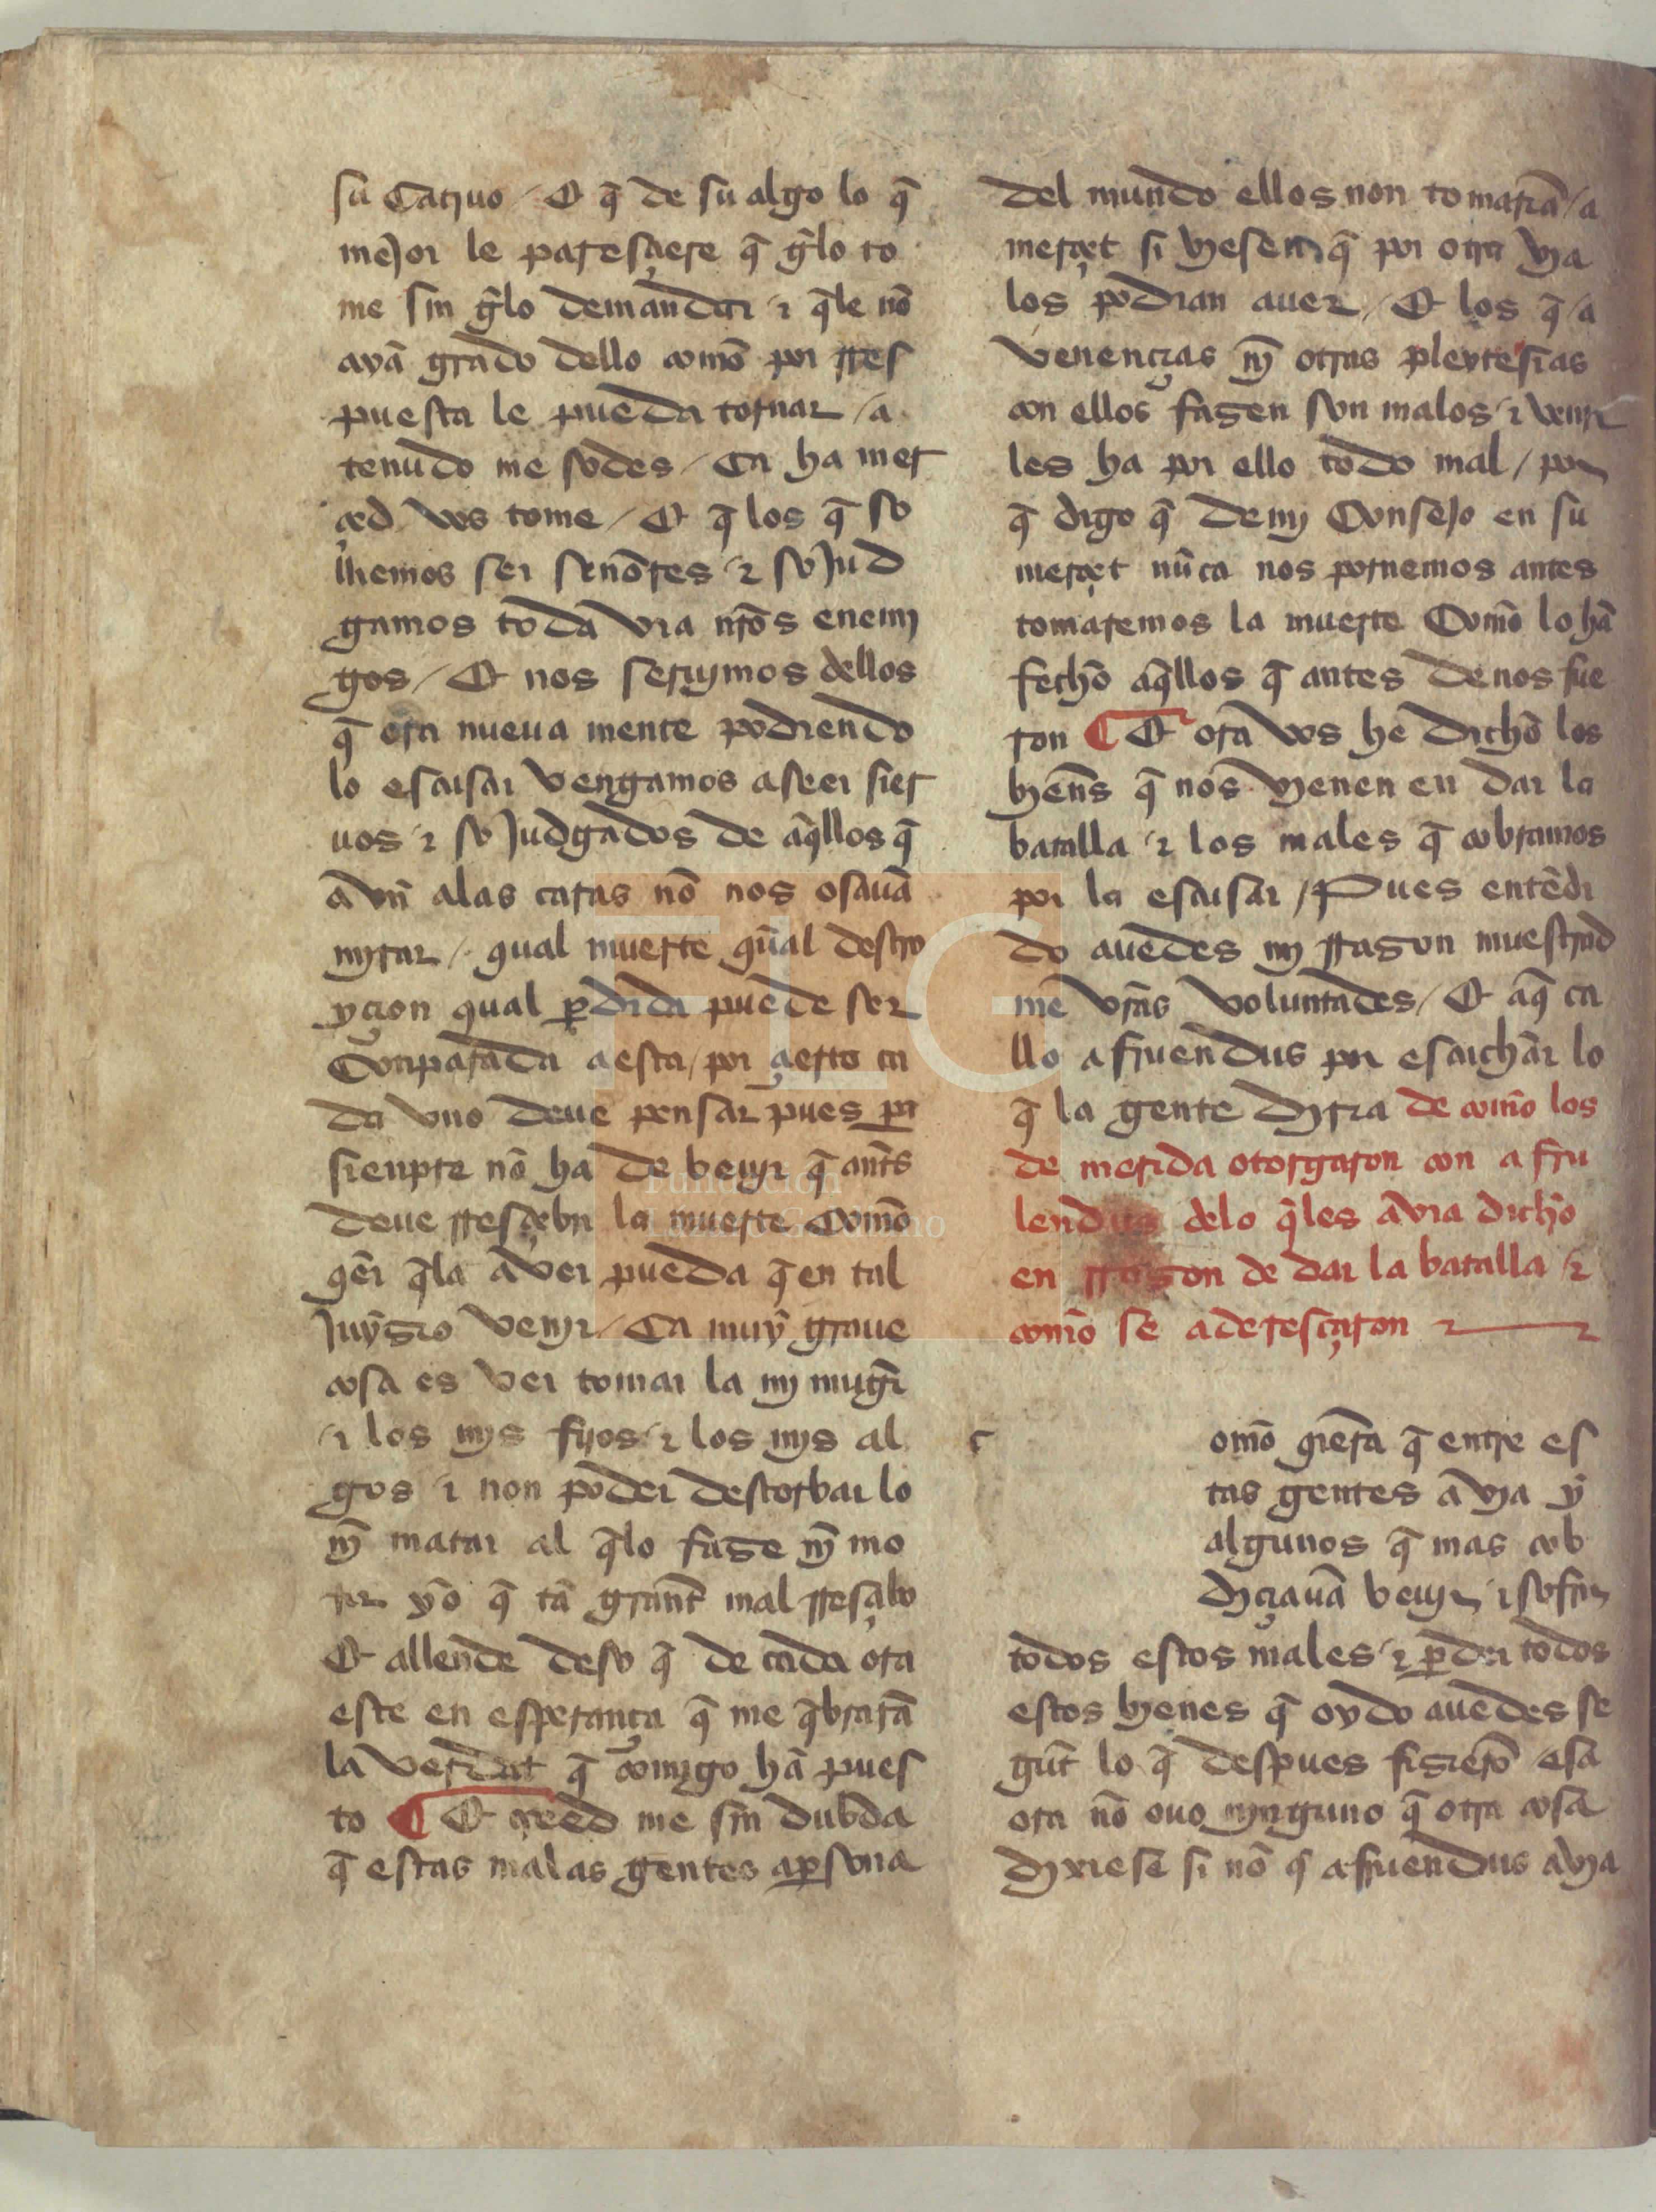 su catiuo / Et q̄ de su algo lo q̄
meJor le paresçiere q̄ gelo to
me sin gelo demandar / ⁊ q̄le nō
ayā grado dello comō por rres
puesta le pueda tornar / a
tenudo me sodes / Ca ha mer
çed vos tome / Et q̄ los q̄ so
lhemos ser senōres / ⁊ soJud
gamos toda via nr̄os enemj
gos / Et nos serujmos dellos
q̄ ora nueua mente podiendo
lo escusar vengamos aseer sier
uos / ⁊ soJudgados de aq̄llos q̄
avn̄ alas caras nō nos osauā
mjrar / qual muerte qual destro
yçion qual ꝑdida puede ser
Conparada a esta / por çierto ca
da vno deue pensar pues ꝑa
sienpre nō ha de beujr q̄ ant̄s
deue rresçebir la muerte Comō
qer q̄la aver pueda q̄ en tal
Juyzio venjr / Ca muy graue
cosa es ver tomar la mj muger
/ ⁊ los mjs fijos / ⁊ los mjs al
gos / ⁊ non poder destorbar lo
nj̄ matar al q̄lo faze nj̄ mo
rir yō q̄ tā grant mal rresçibo
Et allende deso q̄ de cada ora
este en esperança q̄ me q̄brarā
la verdat q̄ comigo hā pues
to ¶ Et creed me sin dubda
q̄ estas malas gentes aꝑsona
del mundo ellos non tomariā / a
merçet si viesen q̄ por otra via
los podrian auer / Et los q̄ / a
venençias nj̄ otras pleytesias
con ellos fazen son malos / ⁊ venjr
les ha por ello todo mal / por
q̄ digo q̄ demj ConseJo en su
merçet nūca nos pornemos antes
tomaremos la muerte Comō lo hā
fechō aq̄llos q̄ antes denos fue
ron ¶ Et ora vos he dichō los
bien̄s q̄ nos vienen en dar la
batalla / ⁊ los males q̄ cobramos
por la escusar / Pues entēdi
do auedes mj rrazon muestrad
me vr̄as voluntades / Et aq̄ ca
llo afruendus por escuchar lo
q̄ la gente dyria de comō los
de merida otorgaron con a fru
lendus delo q̄les avia dichō
en rrazon de dar la batalla / ⁊
comō se aderesçaron
c omō qiera q̄ entre es
tas gentes avia y
algunos q̄ mas cob
diçiauā beujr / ⁊ sofrir
todos estos males / ⁊ ꝑder todos
estos bienes q̄ oydo auedes se
gūt lo q̄ despues fizierō esa
ora nō ouo njnguno q̄ otra cosa
dyxiese si nō q̄ afruendus avia
FLG
Fundación
Lázaro Galdiano